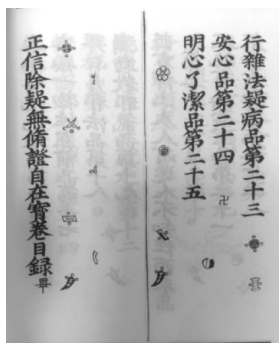 行雜法疑病品第二十三
安心品第二十四
明心了潔品第二十五
正信除疑無脩證自在寳卷目録畢